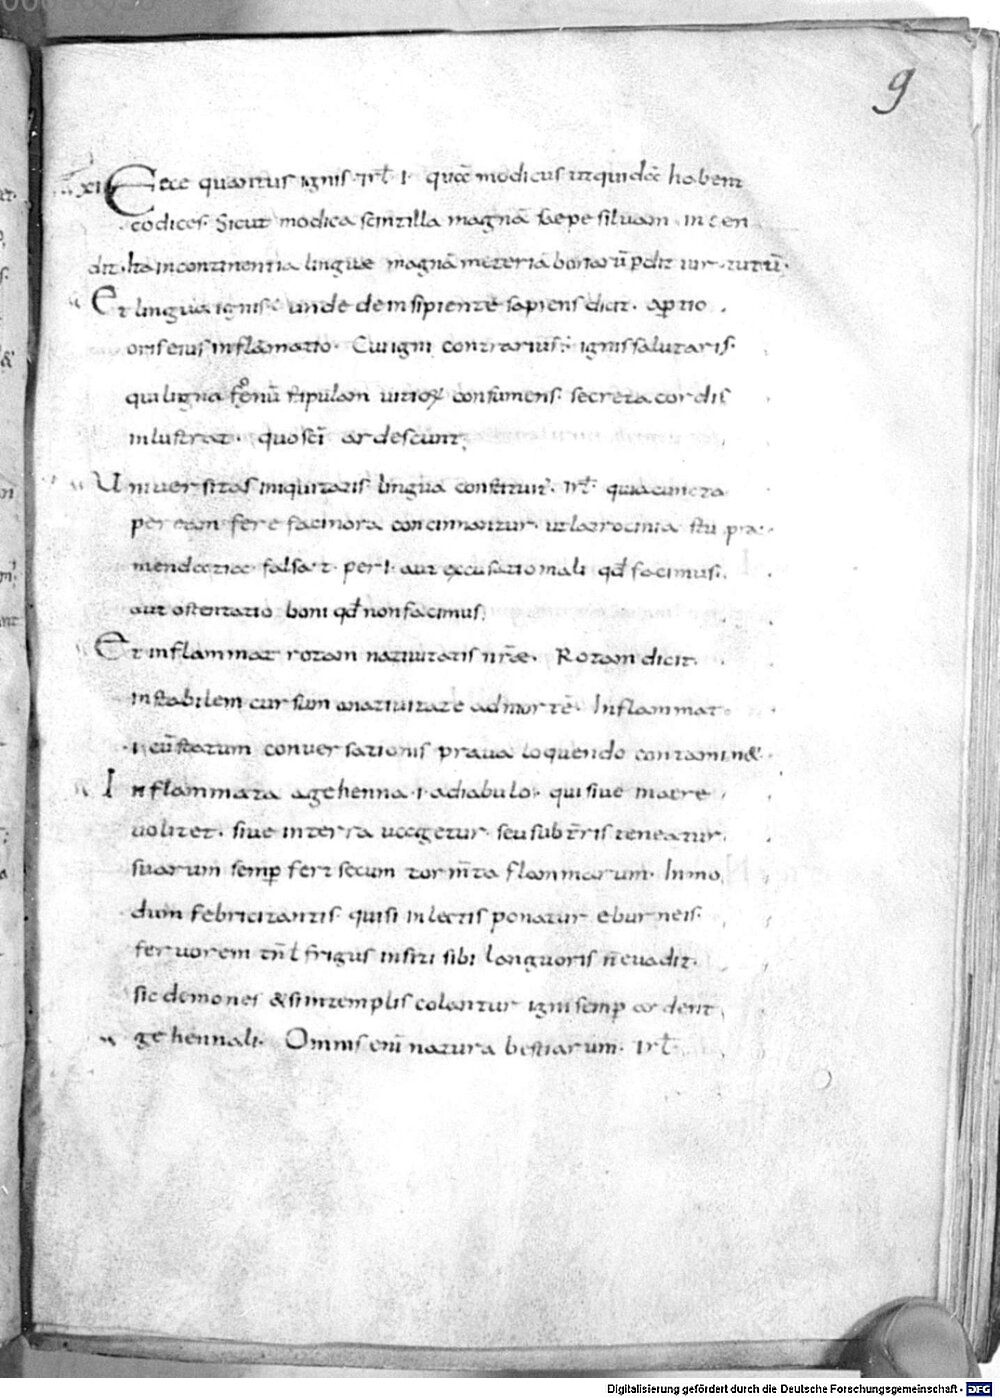 9
xi Ecce quantus ignis · irl̄ · i · quā modicus ut quidā habent
codices · Sicut modica scintilla magnā saepe siluam incen
dit · Ita incontinentia linguae magnā materiā bonarū pdit uirtutū ·
Et lingua ignis ē unde de insipiente sapiens dicit · aptio
oris eius inflāmatio · Cui igni contrarius ē ignis salutaris ·
qui ligna foenū stipulam uitioꝝ consumens · secreta cordis
inlustrat · quo sc̄i ardescunt;
Uniuersitas iniquitatis lingua constituit̄ · irl̄ · quia cuncta
per eam fere facinora concinnantur · ut latrocinia stupra
mendatiae fals at · per i · aut excusatio mali qd̄ facimus ·
aut ostentatio boni qd̄ non facimus;
Et inflammat rotam natiuitatis nr̄ae · Rotam dicit
instabilem cursum a natiuitate ad mortē · Inflammat
· i · cū statum conuersationis praua loquendo contamin& ·
Inflammata a gehenna · i · a diabulo · qui siue in aere
uolitet · siue in terra uagetur · seu sub tr̄ris teneatur ·
suarum semp̄ fert secum tormn̄ta flammarum · In mo
dum febricitantis · qui si in lectis ponatur eburneis ·
feruorem tn̄ l frigus insiti sibi languoris n̄ euadit ·
sic demones & si in templis colantur igni semp̄ ardent
gehennali · Omnis enī natura bestiarum · irl̄ ·
Digitalisierung gefördert durch die Deutsche Forschungsgemeinschaft - DFG